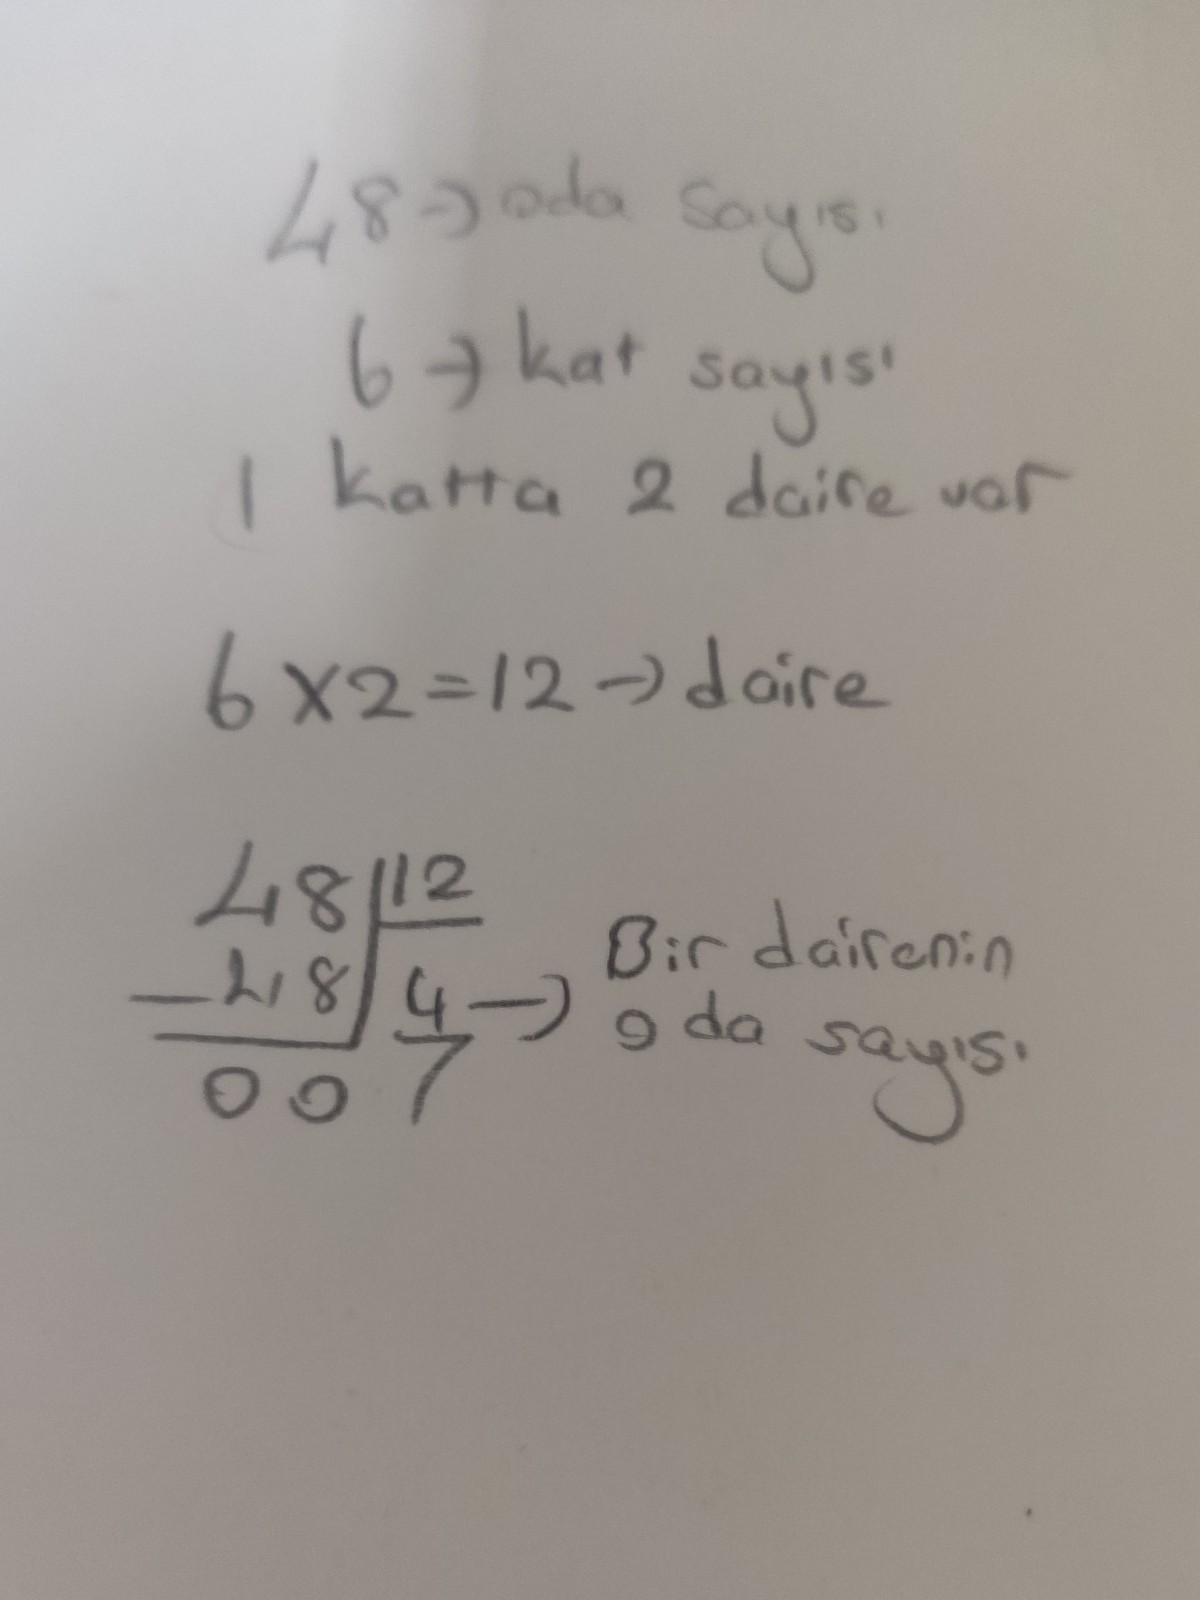 48 → oda sayısı
6 → kat sayısı
1 katta 2 daire var
6 x 2 = 12 → daire
48 | 12
- 48 | 4 → Bir dairenin
oda sayısı
00